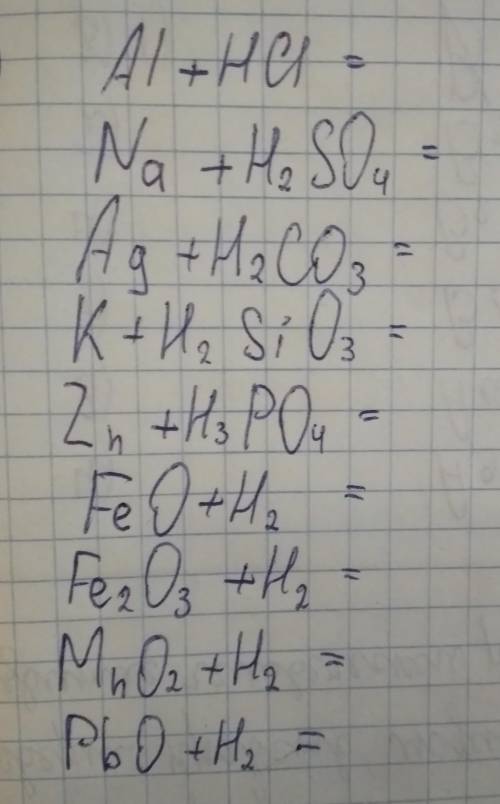 Al + HCl =
Na + H₂SO₄ =
Ag + H₂CO₃ =
K + H₂SiO₃ =
Zn + H₃PO₄ =
FeO + H₂ =
Fe₂O₃ + H₂ =
MnO₂ + H₂ =
PbO + H₂ =